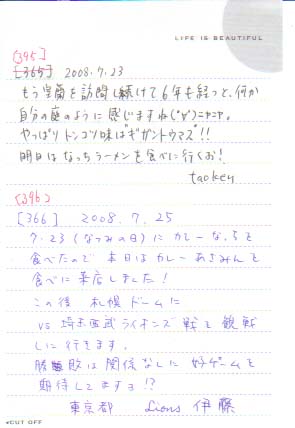 LIFE IS BEAUTIFUL
[395]
[365] 2008.7.23
もう皇蘭を訪問し続けて6年も経つと、何か
自分の庭のように感じますね(°∀°)ニヤニヤ。
やっぱりトンコツ味はギガントウマス!!
明日はなっちラーメンを食べに行くお!
taokey
[396]
[366] 2008.7.25
7・23(なつみの日)にカレーなっちを
食べたので本日はカレーあさみんを
食べに来店しました!
この後 札幌ドームに
vs 埼玉西武ライオンズ戦を観戦
しに行きます。
勝敗は関係なしに好ゲームを
期待してますョ!?
東京都 Lions 伊藤
*CUT OFF